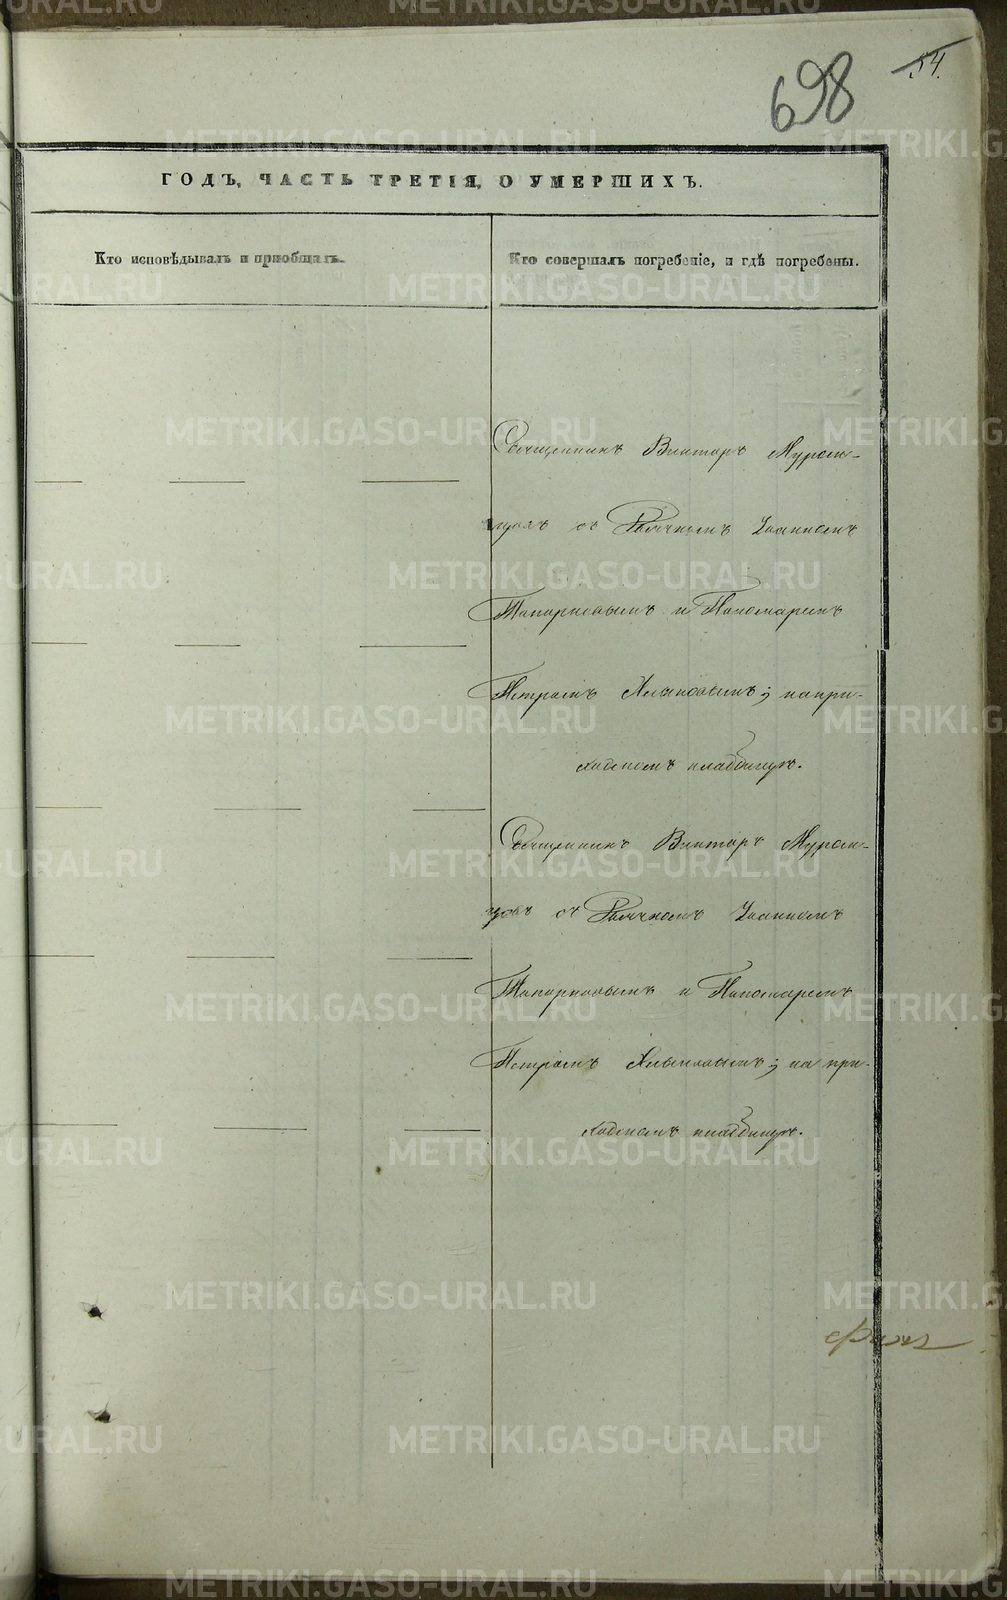 698
54.
ГОДЪ, ЧАСТЬ ТРЕТІЯ, О УМЕРШИХЪ.
Кто исповѣдывалъ и пріобщалъ.
Кто совершалъ погребеніе, и гдѣ погребены.
Священникъ Викторъ Муром-
цовъ съ Іоанномъ
Топорковымъ и Пономаремъ
Петромъ Хлыновымъ; на при-
ходскомъ кладбищѣ.
Священникъ Викторъ Муром-
цовъ съ Іоанномъ
Топорковымъ и Пономаремъ
Петромъ Хлыновымъ; на при-
ходскомъ кладбищѣ.
METRIKI.GASO-URAL.RU